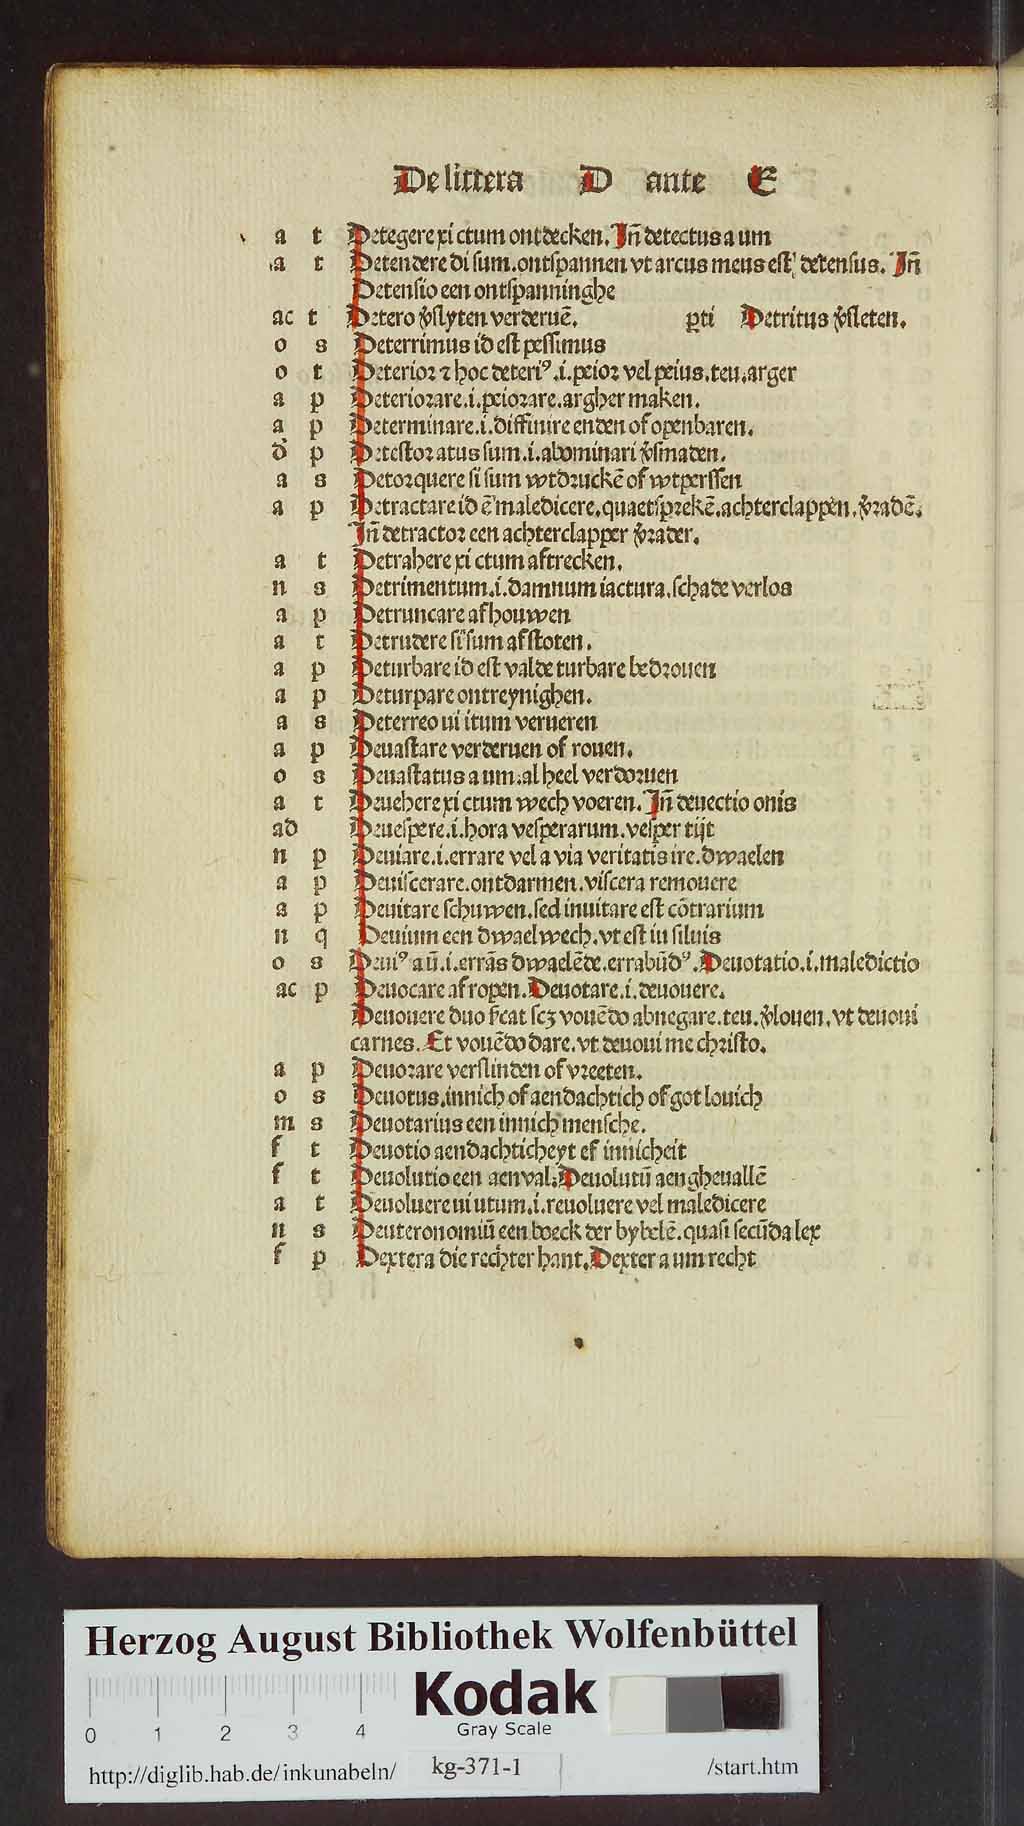 De littera D ante E
a t Detegere xi ctum ontdecken. Jn̄ detectus a um
a t Detendere di sum. ontspannen vt arcus meus est detensus. Jn̄
Detensio een ontspanninghe
ac t Detero v̉slyten verderuē. ꝑti Detritus v̉sleten.
o s Deterrimus id est pessimus
o t Deterior ⁊ hoc deteriꝰ .i. peior vel peius. teu. arger
a p Deteriorare .i. peiorare. argher maken.
a p Determinare .i. diffinire enden of openbaren.
d̉ p Detestor atus sum .i. abominari v̉smaden.
a s Detorquere si sum wtdruckē of wtperssen
a p Detractare id ē maledicere. quaetsprekē. achterclappen. v̉radē.
Jn̄ detractor een achterclapper v̉rader.
a t Detrahere xi ctum aftrecken.
n s Detrimentum .i. damnum iactura. schade verlos
a p Detruncare af houwen
a t Detrudere si sum af stoten.
a p Deturbare id est valde turbare bedrouen
a p Deturpare ontreynighen.
a s Deterreo ui itum verueren
a p Deuastare verderuen of rouen.
o s Deuastatus a um. al heel verdoruen
a t Deuehere xi ctum wech voeren. Jn̄ deuectio onis
ad Deuespere .i. hora vesperarum. vesper tijt
n p Deuiare .i. errare vel a via veritatis ire. dwaelen
a p Deuiscerare. ontdarmen. viscera remouere
a p Deuitare schuwen. sed inuitare est cōtrarium
n q Deuium een dwael wech. vt est in siluis
o s Deuiꝰ aū .i. errās dwaelēde. errabūdꝰ. Deuotatio .i. maledictio
ac p Deuocare af ropen. Deuotare .i. deuouere.
Deuouere duo s̄cat scꝫ vouēdo abnegare. teu. v̉louen. vt deuoui
carnes. Et vouēdo dare. vt deuoui me christo.
a p Deuorare verslinden of vreeten.
o s Deuotus. innich of aendachtich of got louich
m s Deuotarius een innich mensche.
f t Deuotio aendachticheyt ef innicheit
f t Deuolutio een aenval. Deuolutū aengheuallē
a t Deuoluere ui utum .i. reuoluere vel maledicere
n s Deuteronomiū een boeck der bybelē. quasi secūda lex
f p Dextera die rechter hant. Dexter a um recht
Herzog August Bibliothek Wolfenbüttel
Kodak
Gray Scale
0 1 2 3 4
http://diglib.hab.de/inkunabeln/ kg-371-1 /start.htm